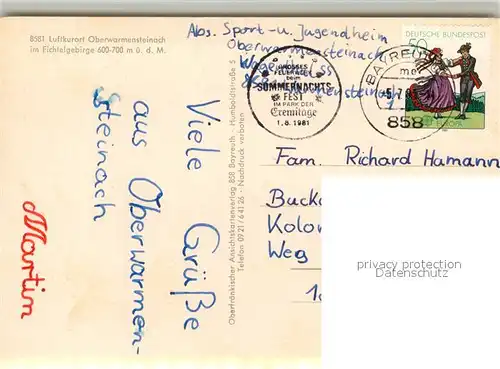 8581 Luftkurort Oberwarmensteinach
im Fichtelgebirge 600-700 m ü. d. M.
Viele Grüße
aus Oberwarmen-
steinach
Martin
Oberfränkischer Ansichtskartenverlag 858 Bayreuth · Humboldtstraße 5
Telefon 0921/64126 · Nachdruck verboten
Abs. Sport-u. Jugendheim
Oberwarmensteinach
GROSSES
FEUERWERK
beim
SOMMERNACHTS
FEST
IM PARK DER
Eremitage
1.8.1981
BAYREUTH
858
DEUTSCHE BUNDESPOST
EUROPA
Fam. Richard Hamann
Kolon
Weg
privacy protection
Datenschutz